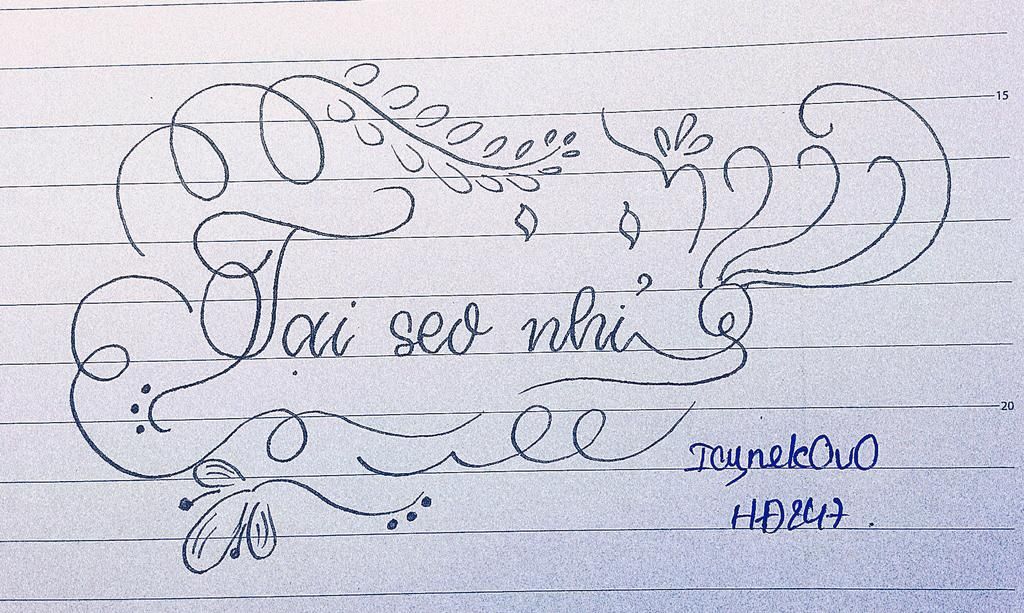 15
Tại seo nhỉ
20
IcynekOvO
HĐ247.